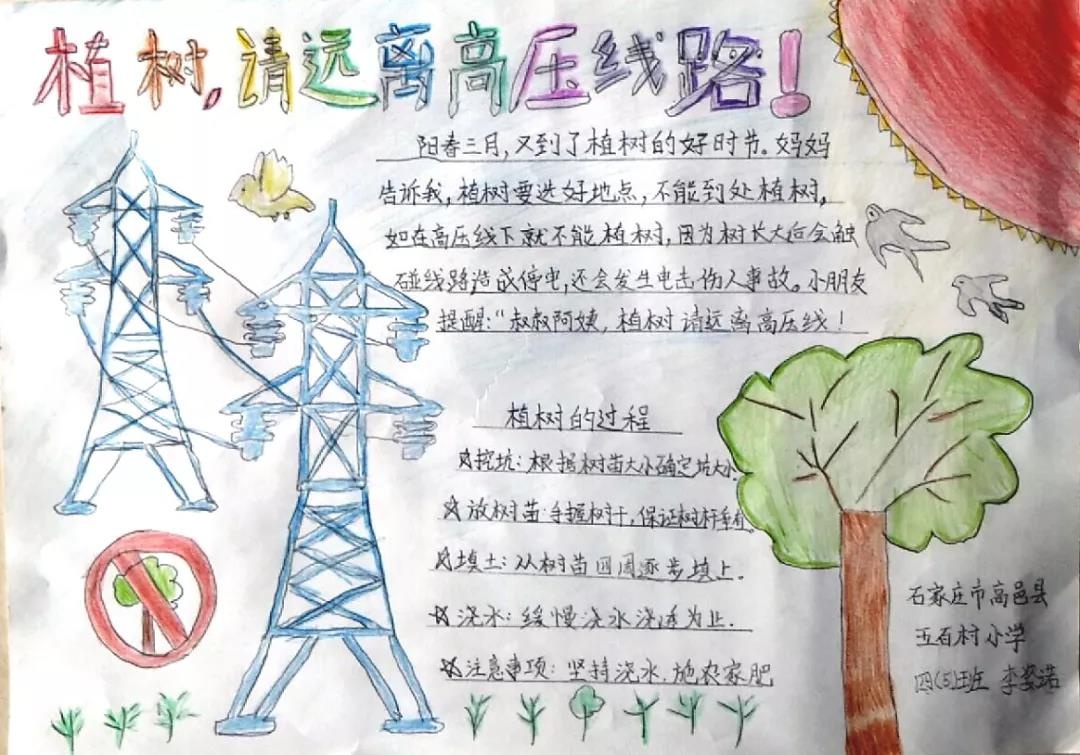 植树,请远离高压线路!
阳春三月,又到了植树的好时节。妈妈
告诉我,植树要选好地点,不能到处植树,
如在高压线下就不能植树,因为树长大后会触
碰线路造成停电,还会发生电击伤人事故。小朋友
提醒:“叔叔阿姨,植树请远离高压线!
植树的过程
☆挖坑:根据树苗大小确定坑大小.
☆放树苗:手握树干,保证树杆垂直
☆填土:从树苗四周逐步填上.
☆浇水:缓慢浇水浇透为止.
☆注意事项:坚持浇水.施农家肥
石家庄市高邑县
五百村小学
四(5)班 李诺